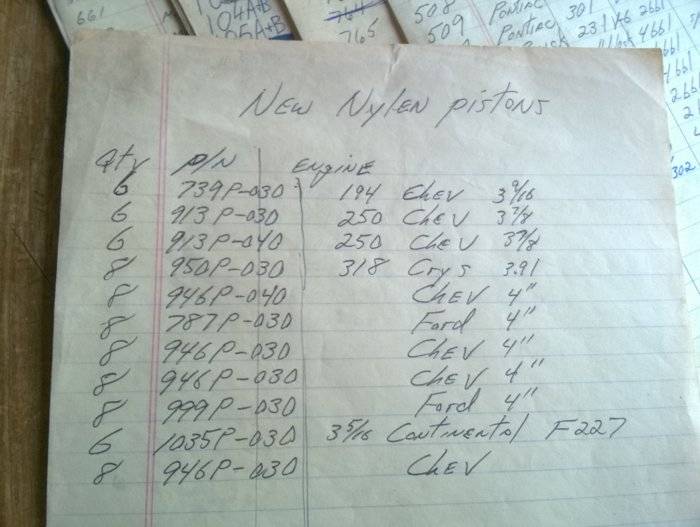 661
104A+B
105A+B
764
765
508
509
Pontiac
Pontiac 301 2661
231 V6 2661
4661
302
New Nylen pistons
Qty P/N Engine
6 739P-030 194 Chev 3 9/16
6 913P-030 250 Chev 3 7/8
6 913P-040 250 Chev 3 7/8
8 950P-030 318 Crys 3.91
8 946P-040 Chev 4"
8 787P-030 Ford 4"
8 946P-030 Chev 4"
8 946P-030 Chev 4"
8 999P-030 Ford 4"
6 1035P-030 3 5/16 Continental F227
8 946P-030 Chev